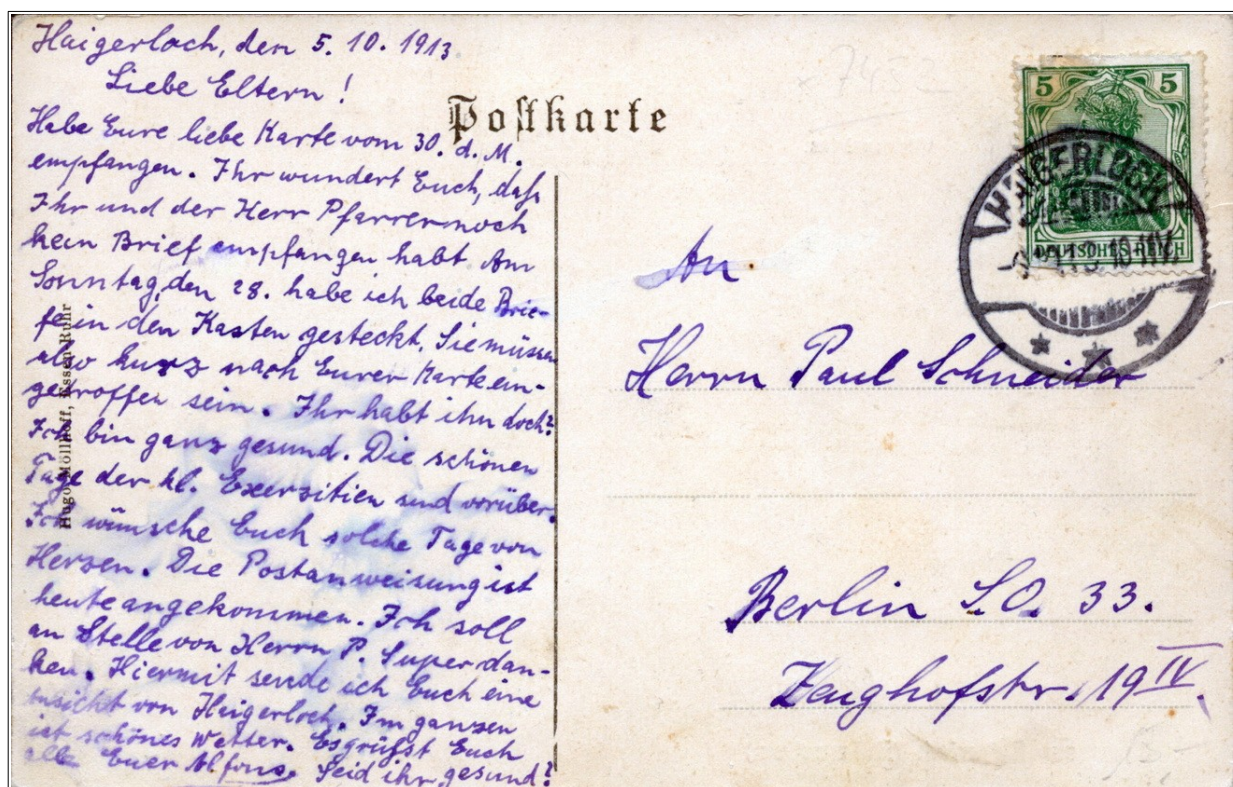 Haigerloch, den 5. 10. 1913
Liebe Eltern!
Habe Eure liebe Karte vom 30. d. M.
empfangen. Ihr wundert Euch, daß
Ihr und der Herr Pfarrer noch
kein Brief empfangen habt. Am
Sonntag, den 28. habe ich beide Brie-
fe in den Kasten gesteckt. Sie müssen
also kurz nach Eurer Karte ein-
getroffen sein. Ihr habt ihn doch?
Ich bin ganz gesund. Die schönen
Tage der hl. Exerzitien sind vorüber.
Ich wünsche Euch solche Tage von
Herzen. Die Postanweisung ist
heute angekommen. Ich soll
an Stelle von Herrn P. Super dan-
ken. Hiermit sende ich Euch eine
Ansicht von Haigerloch. Im ganzen
ist schönes Wetter. Es grüßt Euch
alle Euer Alfons. Seid ihr gesund?
Postkarte
Hugo Möllhoff, Essen-Ruhr
5 5
DEUTSCHES REICH
HAIGERLOCH
An
Herrn Paul Schneider
Berlin S.O. 33.
Zeughofstr. 19 IV.